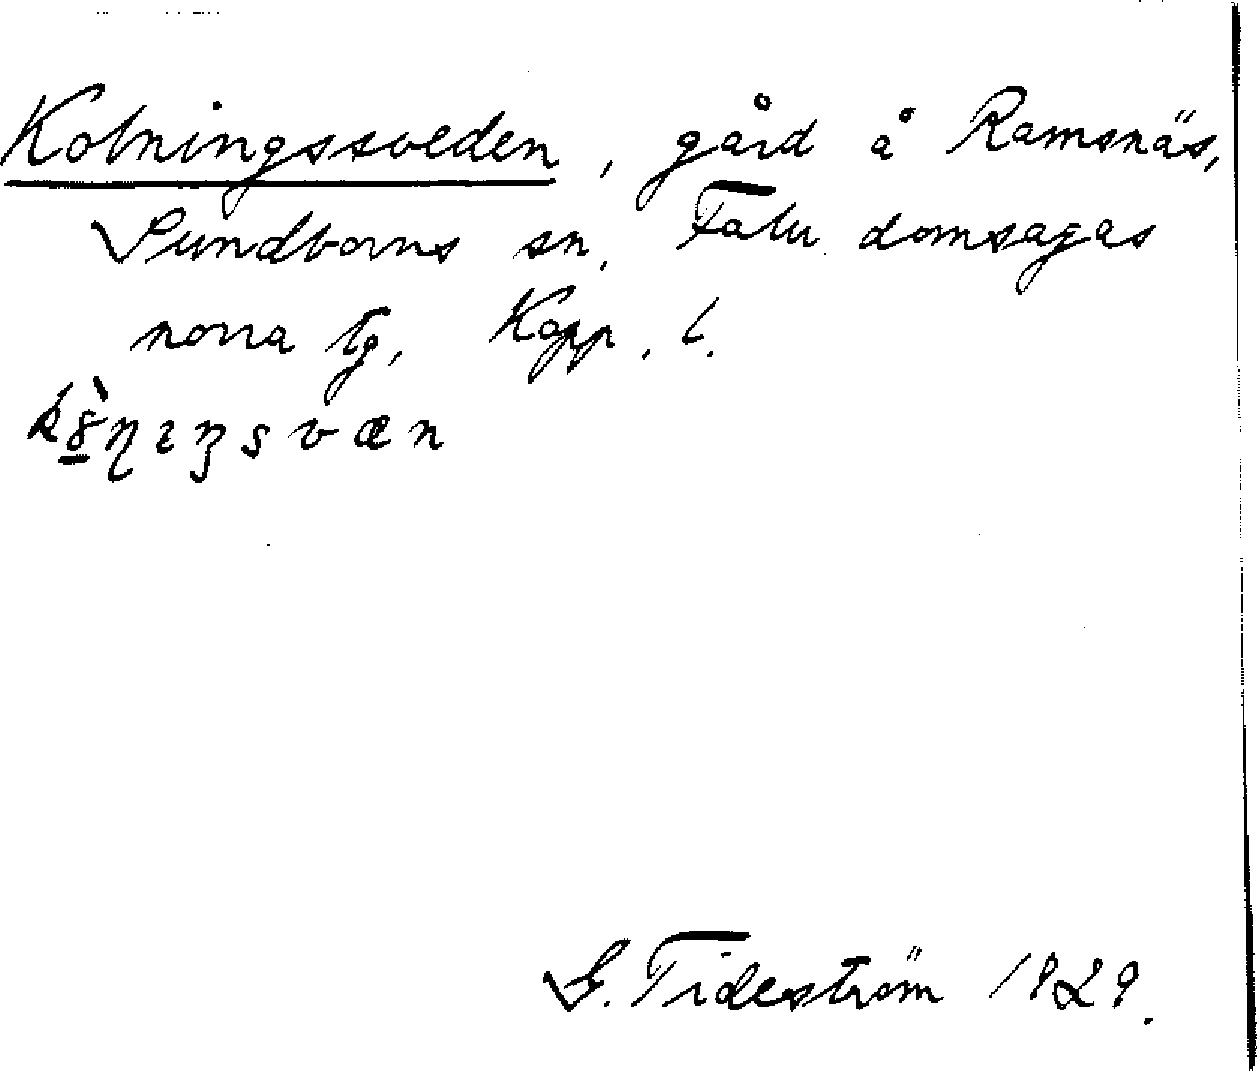 Kolningssveden, gård å Ramsnäs,
Sundborns sn, Falu domsagas
norra tg, Kopp. l.
G. Tideström 1929.